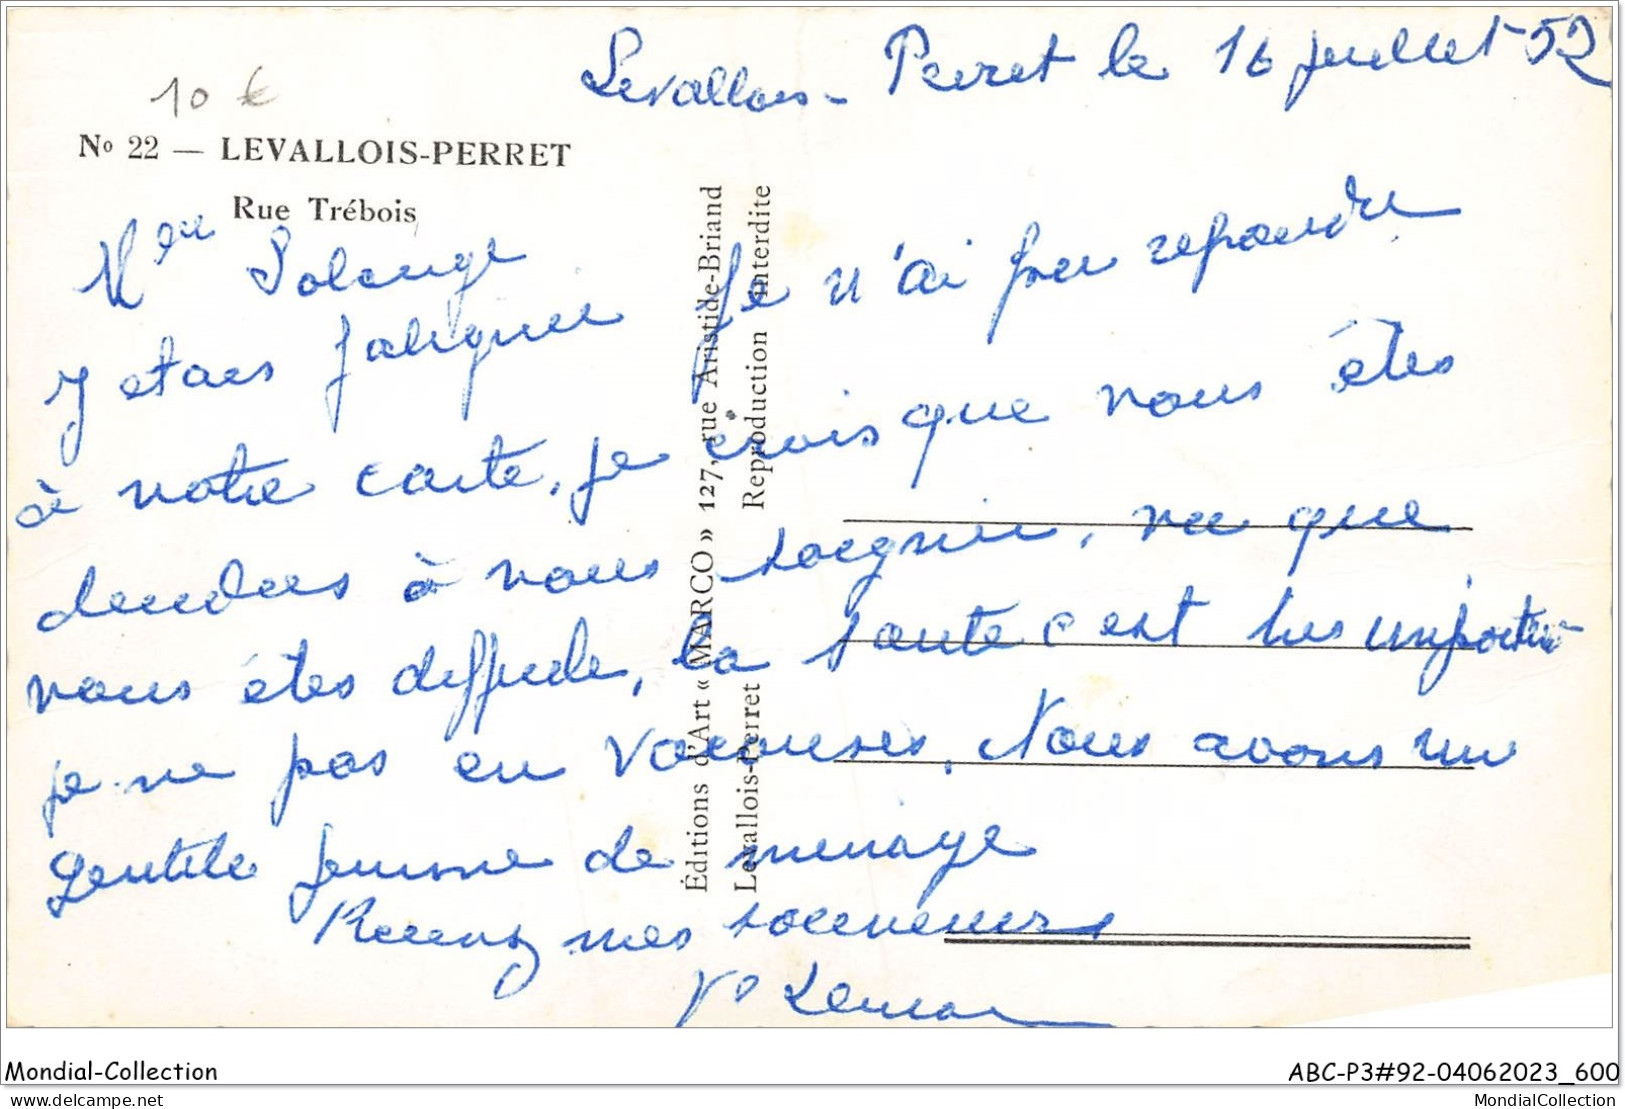 Levallois-Perret le 16 juillet 52
10 €
No 22 — LEVALLOIS-PERRET
Rue Trébois
Mlle Solange
J etais fatiguee je n'ai pu repondre
à votre carte, je crois que vous êtes
à vous soigner, vu que
vous êtes difficile, la sante c est tres important
je ne pas en vacances, Nous avons un
gentille femme de menage
Recevez mes souvenirs
Éditions d'Art « MARCO » 127, rue Aristide-Briand
Levallois-Perret Reproduction interdite
Mondial-Collection
ABC-P3#92-04062023_600
delcampe.net
MondialCollection